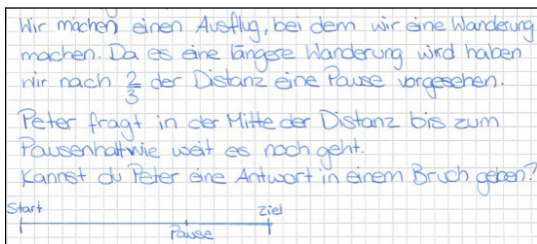 Wir machen einen Ausflug, bei dem wir eine Wanderung
machen. Da es eine längere Wanderung wird haben
wir nach 2/3 der Distanz eine Pause vorgesehen.
Peter fragt in der Mitte der Distanz bis zum
Pausenhalt wie weit es noch geht.
Kannst du Peter eine Antwort in einem Bruch geben?
Start Ziel
Pause